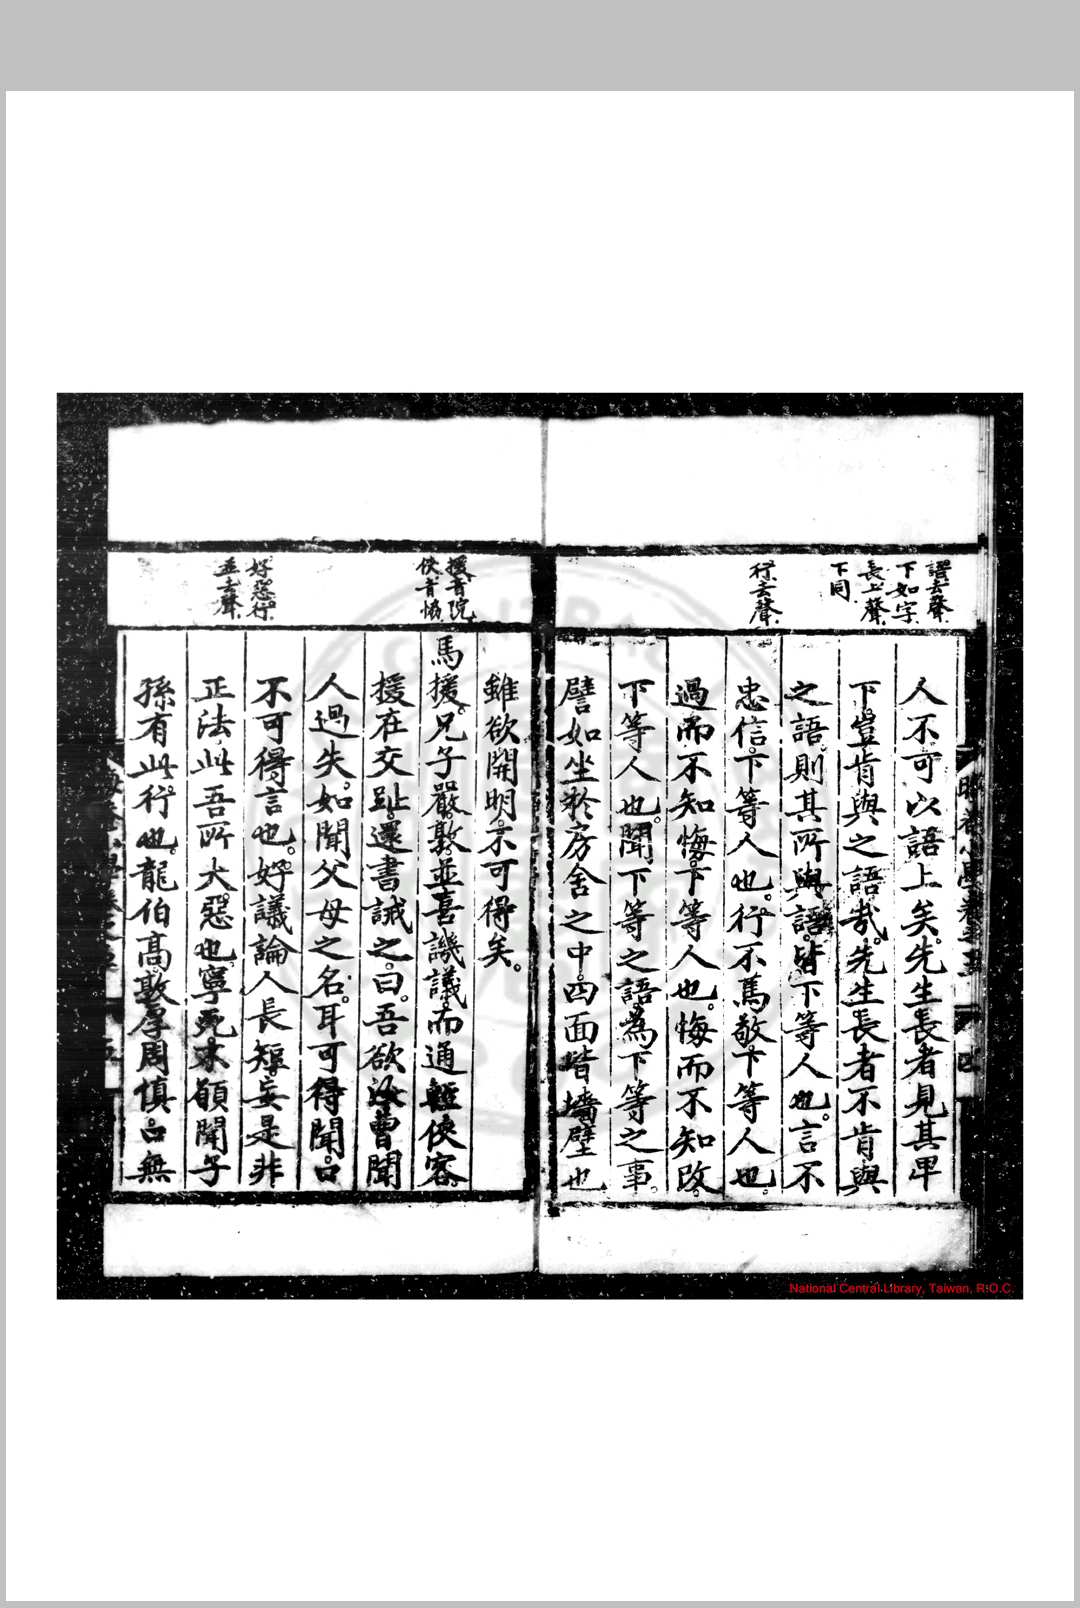 語去聲
下如字
長上聲
下同
行去聲
人不可以語上矣先生長者見其卑
下豈肯與之語哉先生長者不肯與
之語則其所與語皆下等人也言不
忠信下等人也行不篤敬下等人也
過而不知悔下等人也悔而不知改
下等人也聞下等之語為下等之事
譬如坐於房舍之中四面皆墻壁也
援音院
俠音協
好惡行
並去聲
雖欲開明不可得矣
馬援兄子嚴敦並喜譏議而通輕俠客
援在交趾還書誡之曰吾欲汝曹聞
人過失如聞父母之名耳可得聞口
不可得言也好議論人長短妄是非
正法此吾所大惡也寧死不願聞子
孫有此行也龍伯高敦厚周慎口無
National Central Library, Taiwan, R.O.C.